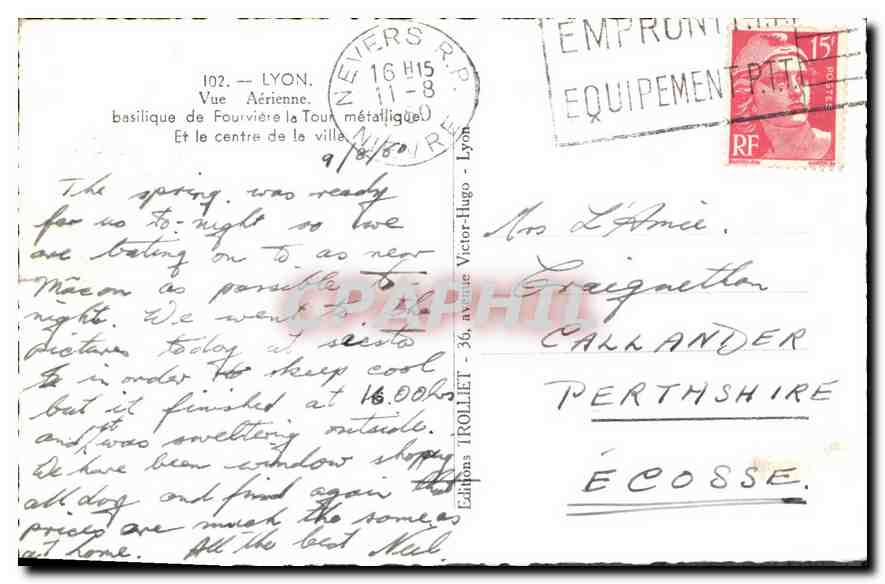 102. — LYON.
Vue Aérienne.
basilique de Fourvière la Tour métallique
Et le centre de la ville
9/8/50
The spring was ready
for us to-night so we
are bating on to as near
Mâcon as possible to
night. We went to the
pictures today at siesta
in order to keep cool
but it finished at 16.00 hrs
and it was sweltering outside.
We have been window shopping
all day and find again that
prices are much the same as
at home. All the best Neil.
Editions TROLLIET - 36, avenue Victor-Hugo - Lyon
NEVERS R.P.
16 H15
11-8
1950
NIEVRE
EMPRUNT
EQUIPEMENT P.T.T.
15F
POSTES
RF
Mrs L'Amie.
Craiguethan
CALLANDER
PERTHSHIRE
ÉCOSSE.
CPAPHIL